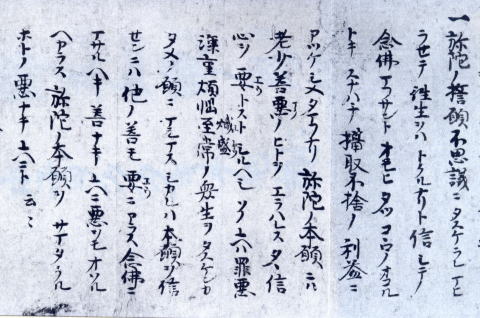 一 弥陀ノ誓願不思議ニタスケラレマヒ
ラセテ往生ヲハトクルナリト信シテ
念佛マフサントオモヒタツコヽロノオコル
トキスナハチ攝取不捨ノ利益ニ
アツケシメタマフナリ弥陀ノ本願ニハ
老少善悪ノヒトヲエラハレスタヽ信
心ヲ要トストシルヘシソノユヘハ罪悪
深重煩悩熾盛ノ衆生ヲタスケンカ
タメノ願ニテマシマスシカレハ本願ヲ信
センニハ他ノ善モ要ニアラス念佛ニ
マサルヘキ善ナキユヘニ悪ヲモオソル
ヘカラス弥陀ノ本願ヲサマタクル
ホトノ悪ナキユヘニト云々